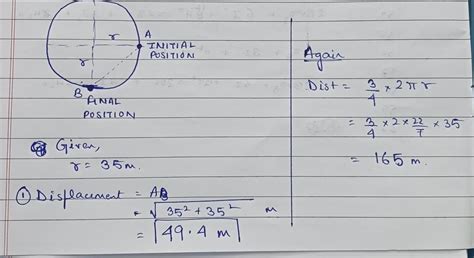 r
A
INITIAL
POSITION
r
B
FINAL
POSITION
Given,
r = 35m.
① Displacement = AB
= √35² + 35² m
= 49.4 m
Again
Dist = 3/4 × 2πr
= 3/4 × 2 × 22/7 × 35
= 165 m.